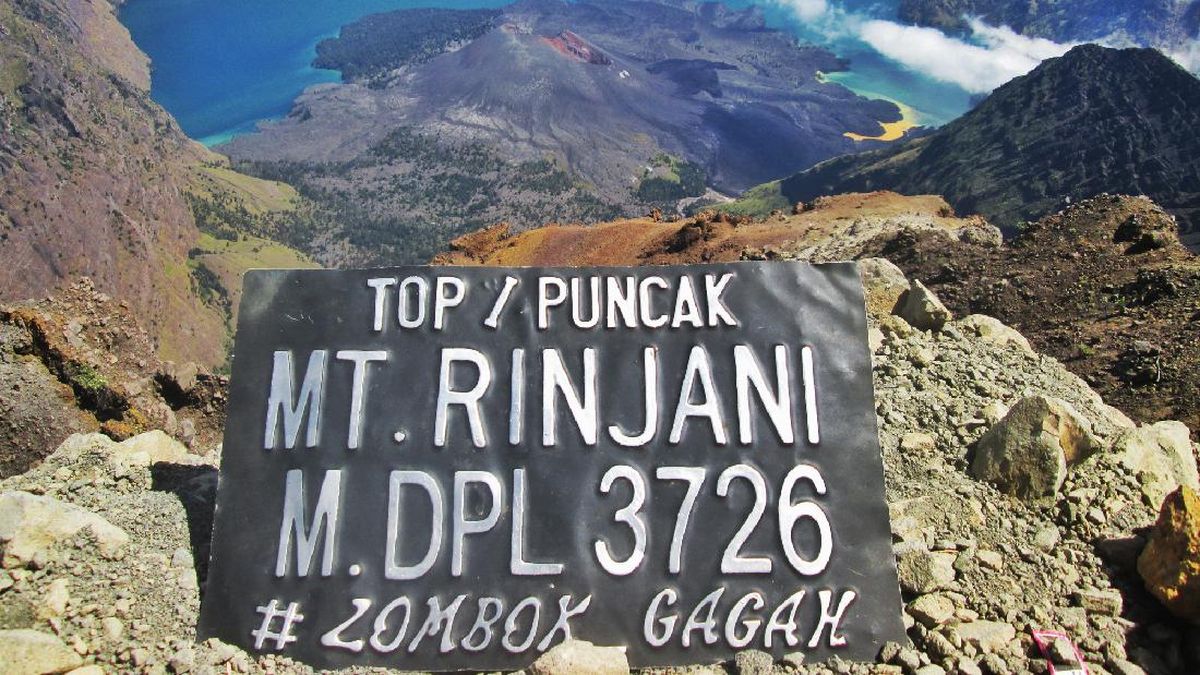 TOP / PUNCAK
MT. RINJANI
M. DPL 3726
# LOMBOK GAGAH